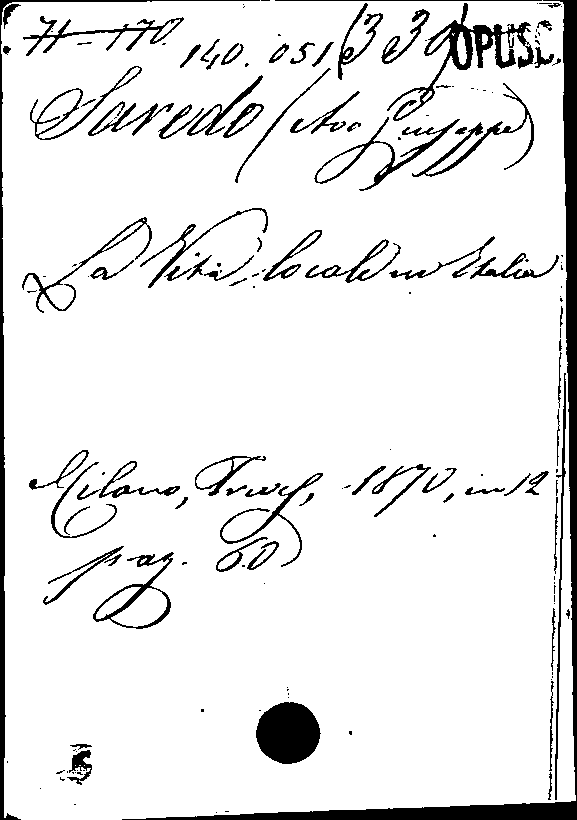 71-170. 140.051(339) OPUSC.
Saredo (Avv Giuseppe)
La Vita locale in Italia
Milano, Treves, 1870, in 12
pag. 60